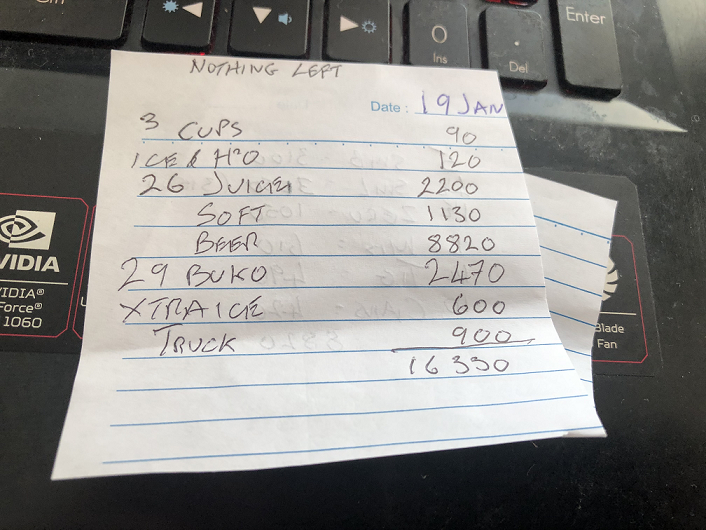 Enter
0
Ins
.
Del
NOTHING LEFT
Date : 19 JAN
3 CUPS 90
ICE & H²O 120
26 JUICE 2200
SOFT 1130
BEER 8820
29 BUKO 2470
XTRA ICE 600
TRUCK 900
16330
VIDIA
VIDIA®
Force®
1060
Blade
Fan